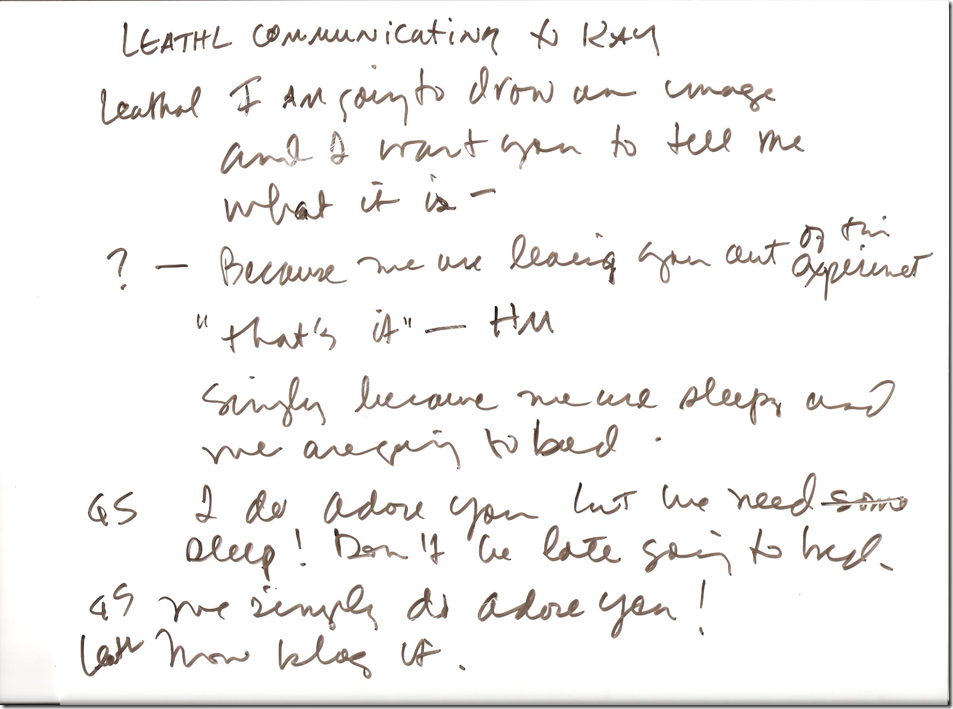 LEATHL COMMUNICATING to KAY
Leathal I AM going to draw an image
and I want you to tell me
what it is -
? - Because we are leaving you out of this experiment
"that's it" - HM
Simply because we are sleepy and
we are going to bed.
GS I do adore you but we need some
sleep! Don't be late going to bed.
GS we simply do adore you!
Leath Now blog it.